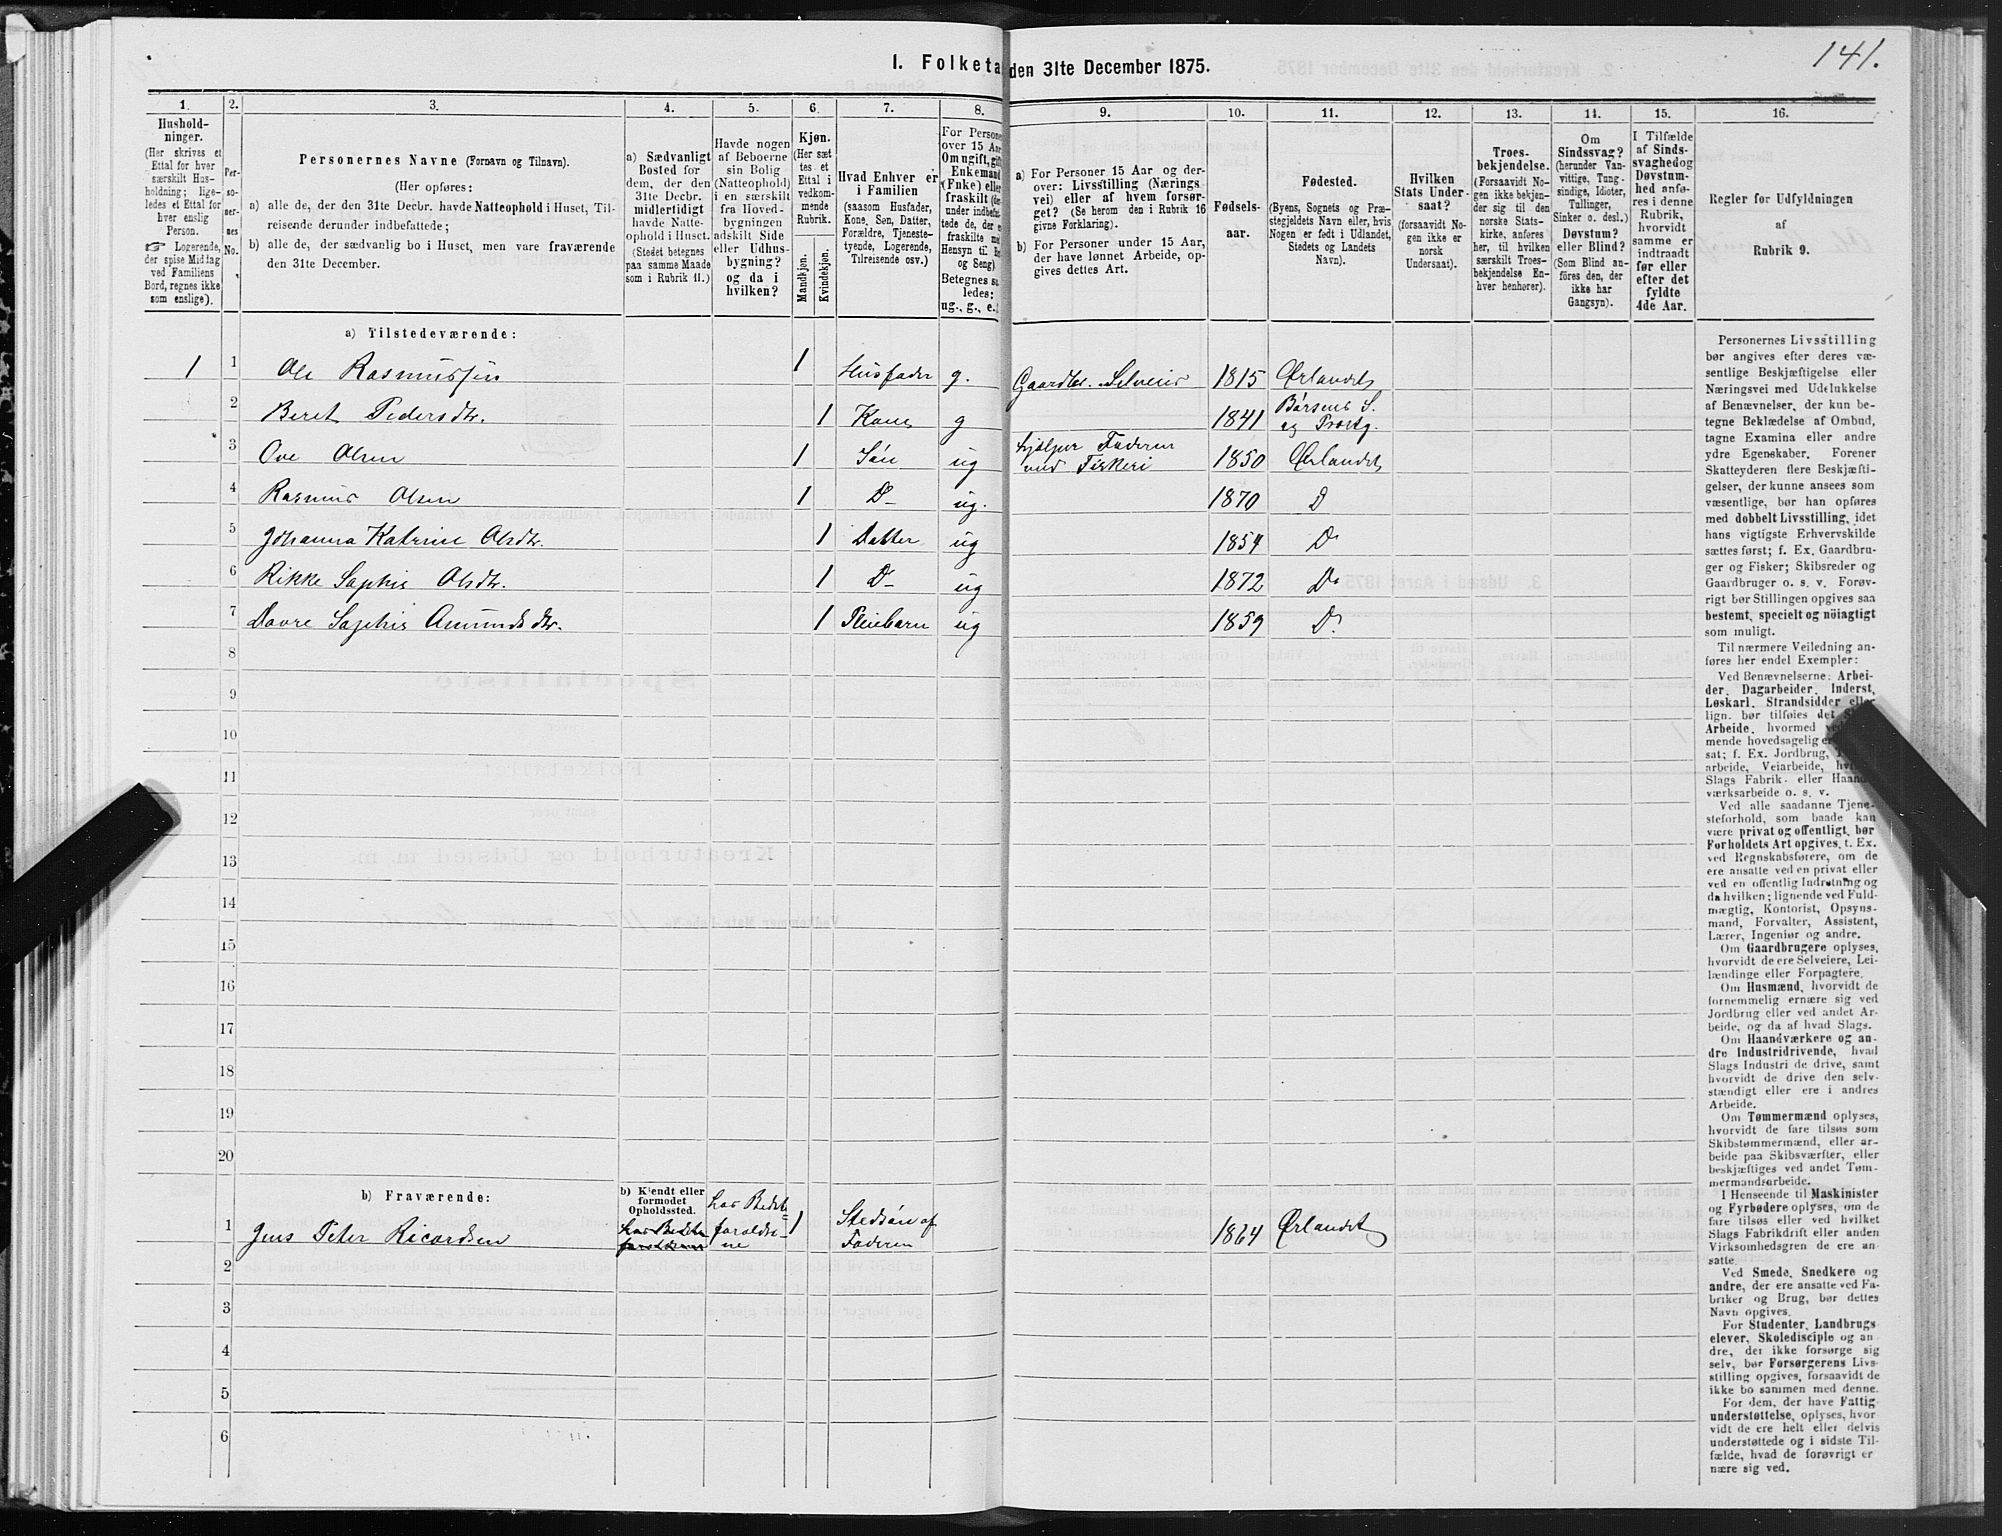 141.
1. Folketa
den 31te December 1875.
1. 2. 3. 4. 5. 6. 7. 8. 9. 10. 11. 12. 13. 14. 15. 16.
Hushold-
ninger.
(Her skrives et
Ettal for hver
særskilt Hus-
holdning; lige-
ledes et Ettal for
hver enslig
Person.
☞ Logerende,
der spise Middag
ved Familiens
Bord, regnes ikke
som enslige).
Per-
so-
ner-
nes
No.
Personernes Navne (Fornavn og Tilnavn).
(Her opføres:
a) alle de, der den 31te Decbr. havde Natteophold i Huset, Til-
reisende derunder indbefattede;
b) alle de, der sædvanlig bo i Huset, men vare fraværende
den 31te December.
a) Sædvanligt
Bosted for
dem, der den
31te Decbr.
midlertidigt
havde Natte-
ophold i Huset.
(Stedet betegnes
paa samme Maade
som i Rubrik 11.)
Havde nogen
af Beboerne
sin Bolig
(Natteophold)
i en særskilt
fra Hoved-
bygningen
adskilt Side
eller Udhus-
bygning?
og da i
hvilken?
Kjøn.
(Her sæt-
tes et
Ettal i
vedkom-
mende
Rubrik.
Mandkjøn.
Kvindekjøn.
Hvad Enhver er
i Familien
(saasom Husfader,
Kone, Søn, Datter,
Forældre, Tjeneste-
tyende, Logerende,
Tilreisende osv.)
For Persone
over 15 Aar
Om ugift, gift
Enkemand
(Enke) eller
fraskilt (der-
under indbefat-
tede de, der e
fraskilte med
Hensyn til Bo
og Seng)
Betegnes saa
ledes:
ug., g., e.
a) For Personer 15 Aar og der-
over: Livsstilling (Nærings
vei) eller af hvem forsør-
get? (Se herom den i Rubrik 16
givne Forklaring).
b) For Personer under 15 Aar,
der have lønnet Arbeide, op-
gives dettes Art.
Fødsels-
aar.
Fødested.
(Byens, Sognets og Præ-
stegjeldets Navn eller, hvis
Nogen er født i Udlandet,
Stedets og Landets
Navn).
Hvilken
Stats Under-
saat?
(forsaavidt No-
gen ikke er
norsk
Undersaat).
Troes-
bekjendelse.
(Forsaavidt No-
gen ikke bekjen-
der sig til den
norske Stats-
kirke, anføres
her, til hvilken
særskilt Troes-
bekjendelse En-
hver henhører).
Om
Sindssvag?
(herunder Van-
vittige, Tung-
sindige, Idioter,
Tullinger,
Sinker o. desl.)
Døvstum?
eller Blind?
(Som Blind an-
føres den, der
ikke har
Gangsyn).
I Tilfælde
af Sinds-
svaghed og
Døvstum-
hed anfø-
res i denne
Rubrik,
hvorvidt
samme er
indtraadt
før eller
efter det
fyldte
4de Aar.
Regler for Udfyldningen
af
Rubrik 9.
a) Tilstedeværende:
1 1 Ole Rasmussen 1 Husfader g. Gaardbr. Selveier 1815 Ørlandet
2 Beret Pedersdtr. 1 Kone g 1841 Børsens S. og Prestg.
3 Ove Olsen 1 Søn ug hjelper Faderen med Fiskeri 1850 Ørlandet
4 Rasmus Olsen 1 D- ug. 1870 D
5 Johanna Katrine Olsdtr. 1 Datter ug 1854 Do
6 Rikke Sophie Olsdtr. 1 D- ug 1872 Do
7 Davre Sophie Amundsdtr. 1 Pleiebarn ug 1859 D.
8
9
10
11
12
13
14
15
16
17
18
19
20
b) Fraværende:
b) Kjendt eller
formodet
Opholdssted.
1 Jens Peter Ricardsen hos Bedste forældre hos Bedste= forældre- ne 1 Stedsøn af Faderen 1864 Ørlandet
2
3
4
5
6
Personernes Livsstilling
bør angives efter deres væ-
sentlige Beskjæftigelse eller
Næringsvei med Udelukkelse
af Benævnelser, der kun be-
tegne Beklædelse af Ombud,
tagne Examina eller andre
ydre Egenskaber. Forener
Skatteyderen flere Beskjæfti-
gelser, der kunne ansees som
væsentlige, bør han opføres
med dobbelt Livsstilling, idet
hans vigtigste Erhvervskilde
sættes først; f. Ex. Gaardbru-
ger og Fisker; Skibsreder og
Gaardbruger o. s. v. Forøv-
rigt bør Stillingen opgives saa
bestemt, specielt og nöiagtigt
som muligt.
Til nærmere Veiledning an-
føres her endel Exempler:
Ved Benævnelserne: Arbei-
der, Dagarbeider, Inderst,
Løskarl, Strandsidder eller
lign. bør tilføies det
Arbeide, hvormed
mende hovedsagelig er
sat; f. Ex. Jordbrug,
arbeide, Veiarbeide,
Slags Fabrik- eller Haand-
værksarbeide o. s. v.
Ved alle saadanne Tjene-
steforhold, som baade kan
være privat og offentligt, bør
Forholdets Art opgives, t. Ex.
ved Regnskabsførere, om de
ere ansatte ved en privat eller
ved en offentlig Indretning og
da hvilken; lignende ved Fuld-
mægtig, Kontorist, Opsyns-
mand, Forvalter, Assistent,
Lærer, Ingeniør og andre.
Om Gaardbrugere oplyses,
hvorvidt de ere Selveiere, Lei-
lændinge eller Forpagtere.
Om Husmænd, hvorvidt de
fornemmelig ernære sig ved
Jordbrug eller ved andet Ar-
beide, og da af hvad Slags.
Om Haandværkere og an-
dre Industridrivende, hvad
Slags Industri de drive, samt
hvorvidt de drive den selv-
stændigt eller ere i andres
Arbeide.
Om Tømmermænd oplyses,
hvorvidt de fare tilsøs som
Skibstømmermænd, eller ar-
beide paa Skibsværfter, eller
beskjæftiges ved andet Tøm-
mermandsarbeide.
I Henseende til Maskinister
og Fyrbødere oplyses, om de
fare tilsøs eller ved hvilket
Slags Fabrikdrift eller anden
Virksomhedsgren de ere an-
satte.
Ved Smede, Snedkere og
andre, der ere ansatte ved Fa-
briker og Brug, bør dettes
Navn opgives.
For Studenter, Landbrugs
elever, Skoledisciple og an
dre, der ikke forsørge sig
selv, bør Forsørgerens Livs-
stilling opgives, forsaavidt de
ikke bo sammen med denne.
For dem, der have Fattig
understøttelse, oplyses, hvor
vidt de ere helt eller delvis
understøttede og i sidste Til-
fælde, hvad de forøvrigt er
nære sig ved.